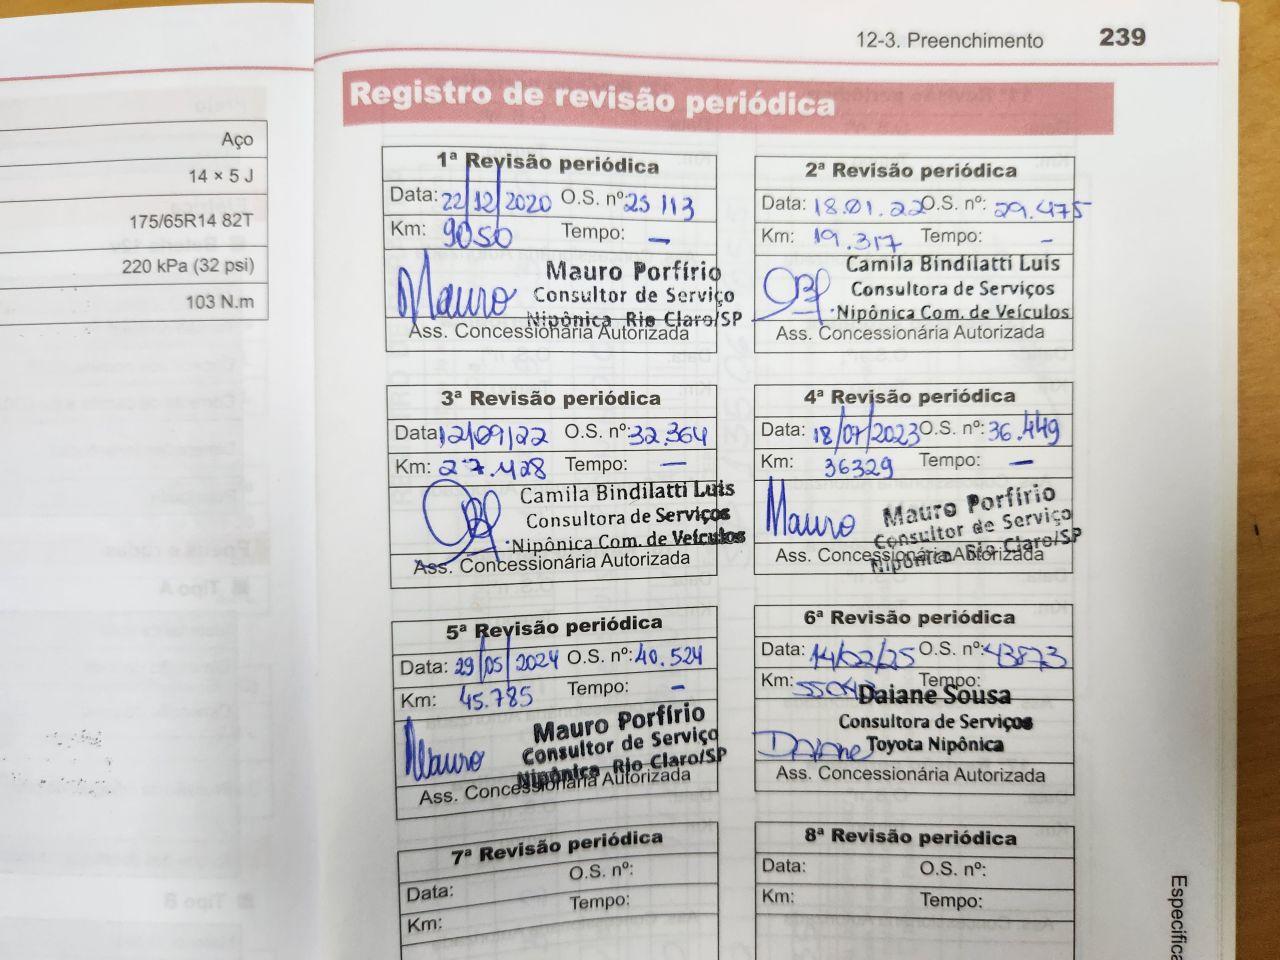 Aço
14 × 5 J
175/65R14 82T
220 kPa (32 psi)
103 N.m
12-3. Preenchimento 239
Registro de revisão periódica
1ª Revisão periódica
Data: 22/12/2020 O.S. nº: 25 113
Km: 9050 Tempo: —
Mauro
Mauro Porfírio
Consultor de Serviço
Nipônica Rio Claro/SP
Ass. Concessionária Autorizada
2ª Revisão periódica
Data: 18.01.22 O.S. nº: 29.475
Km: 19.317 Tempo: -
Camila Bindilatti Luis
Consultora de Serviços
Nipônica Com. de Veículos
Ass. Concessionária Autorizada
3ª Revisão periódica
Data: 12/09/22 O.S. nº: 32.364
Km: 27.428 Tempo: —
Camila Bindilatti Luis
Consultora de Serviços
Nipônica Com. de Veículos
Ass. Concessionária Autorizada
4ª Revisão periódica
Data: 18/07/2023 O.S. nº: 36.449
Km: 36329 Tempo: —
Mauro
Mauro Porfírio
Consultor de Serviço
Nipônica Rio Claro/SP
Ass. Concessionária Autorizada
5ª Revisão periódica
Data: 29/05/2024 O.S. nº: 40.524
Km: 45.785 Tempo: -
Mauro
Mauro Porfírio
Consultor de Serviço
Nipônica Rio Claro/SP
Ass. Concessionária Autorizada
6ª Revisão periódica
Data: 14/02/25 O.S. nº: 43873
Km: Tempo:
Daiane Sousa
Consultora de Serviços
Daiane Toyota Nipônica
Ass. Concessionária Autorizada
7ª Revisão periódica
Data: O.S. nº:
Km: Tempo:
8ª Revisão periódica
Data: O.S. nº:
Km: Tempo:
Especifica